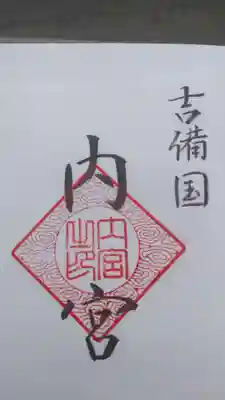 吉備国
内宮
内宮之印